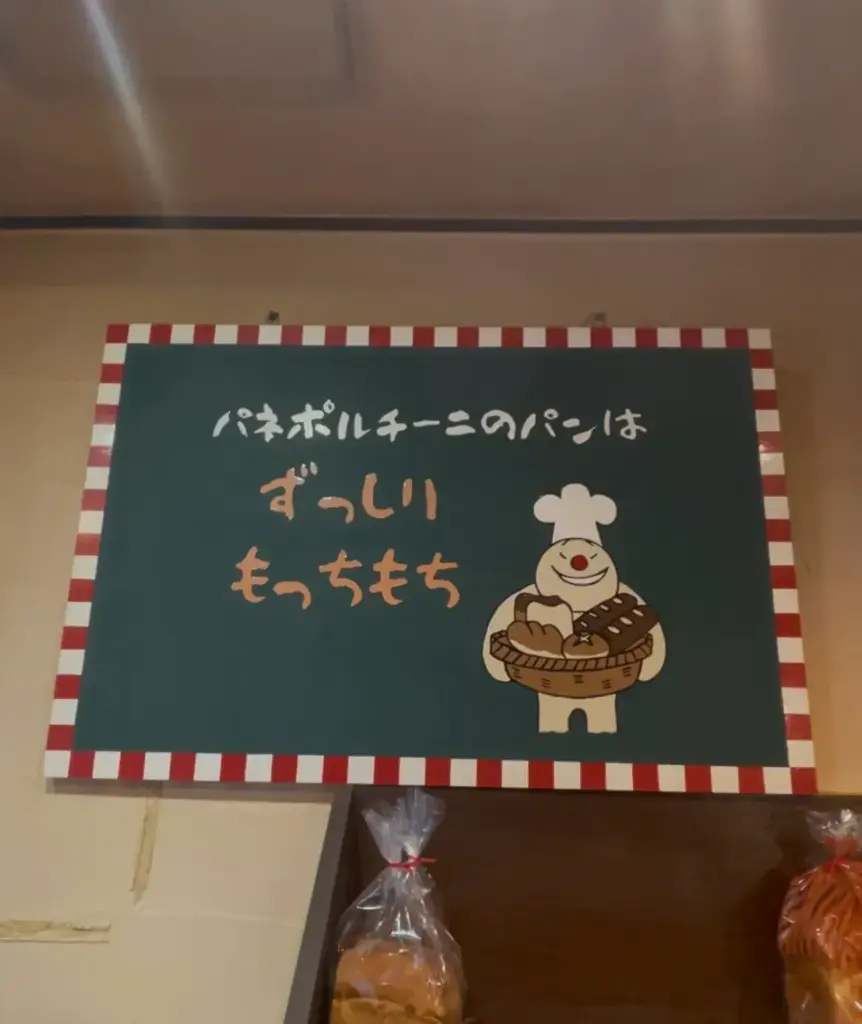 パネポルチーニのパンは
ずっしり
もっちもち